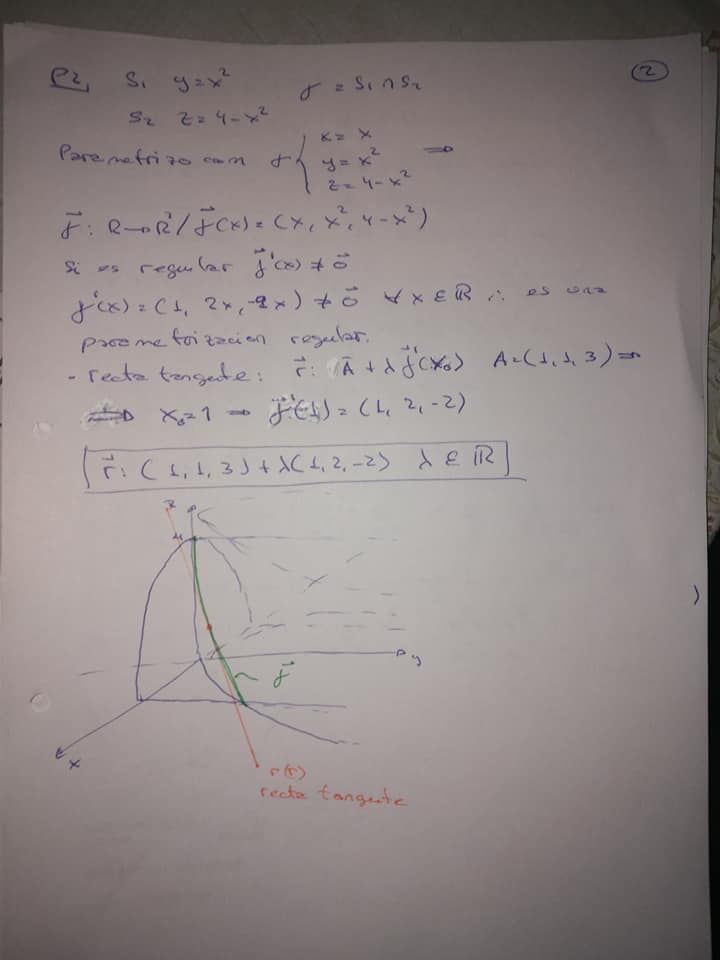 P2, S₁ y=x² γ = S₁∩S₂ ②
S₂ z=4-x²
Parametrizo con γ { x= x
y= x²
z= 4-x² ⇒
γ⃗: R→R³/γ⃗(x)=(x, x², 4-x²)
Si es regular γ⃗'(x) ≠ 0⃗
γ'(x)=(1, 2x,-2x) ≠ 0⃗ ∀ x ∈ ℝ ∴ es una
parametrizacion regular.
- recta tangente: r⃗: Ā + λ γ⃗'(x₀) A=(1,1,3)⇒
x₀=1 ⇒ γ⃗'(1)=(1, 2,-2)
r⃗: (1,1,3)+λ(1,2,-2) λ ∈ ℝ
z
4
y
γ⃗
x
recta tangente